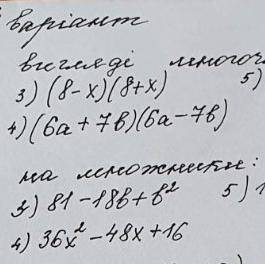 варіант
вигляді многоч
3) (8-x)(8+x) 5)
4) (6a+7b)(6a-7b)
на множники:
3) 81-18b+b² 5) 1
4) 36x²-48x+16